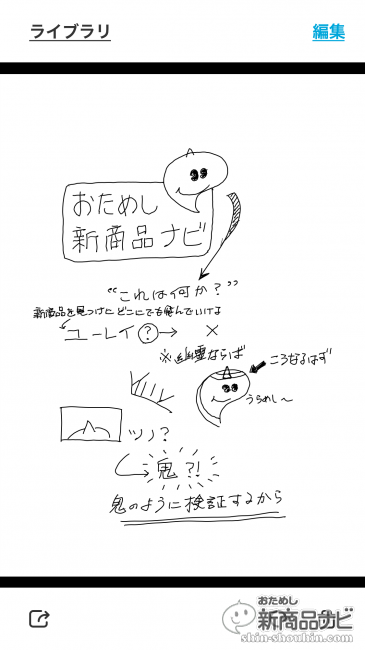 ライブラリ
編集
おためし
新商品ナビ
“これは何か?”
新商品を見つけにどこにでも飛んでいけよ
ユーレイ?→ ×
※幽霊ならば
ころなるはず
うらめし〜
ツノ?
鬼?!
鬼のように検証するから
おためし
新商品ナビ
shin-shouhin.com